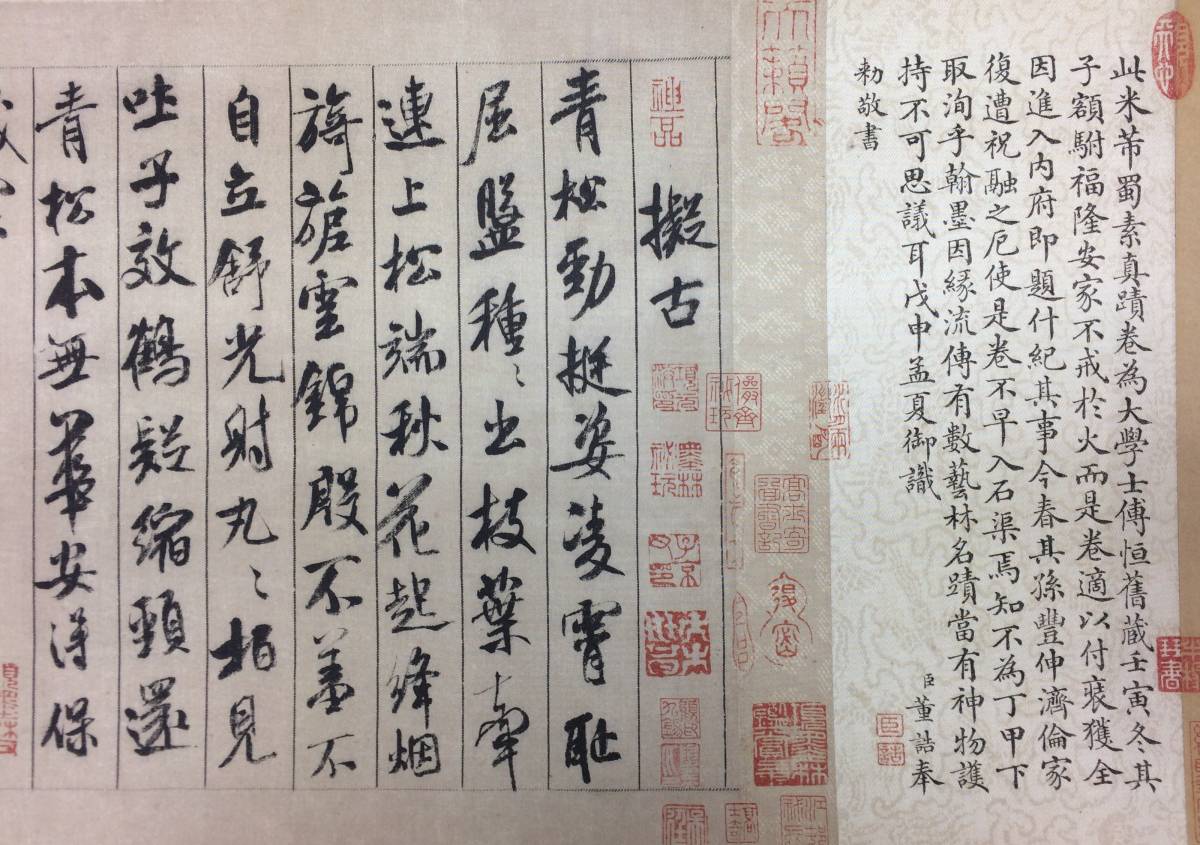 此米芾蜀素真蹟卷為大學士傅恒舊藏壬寅冬其
子額駙福隆安家不戒於火而是卷適以付裱獲全
因進入內府即題什紀其事今春其孫豐伸濟倫家
復遭祝融之厄使是卷不早入石渠焉知不為丁甲下
取洵乎翰墨因緣流傳有數藝林名蹟當有神物護
持不可思議耳戊申孟夏御識 臣董誥奉
勅敬書
神品
擬古
青松勁挺姿凌霄耻
屈盤種〻出枝葉牽
連上松端秋花起絳烟
旖旎雲錦殷不羞不
自立舒光射丸〻栢見
吐子效鶴疑縮頸還
青松本無華安得保